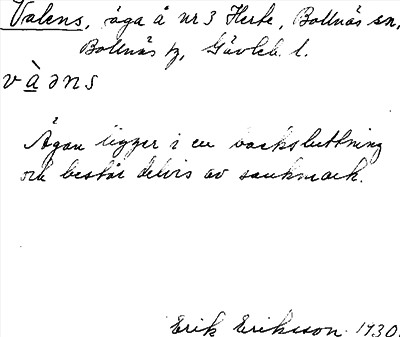 Valens, åga å nr 3 Herte, Bollnäs sn,
Bollnäs tg, Gävleb. l.
vàəns
Ågan ligger i en backsluttning
och består delvis av sankmark.
Erik Eriksson 1930.